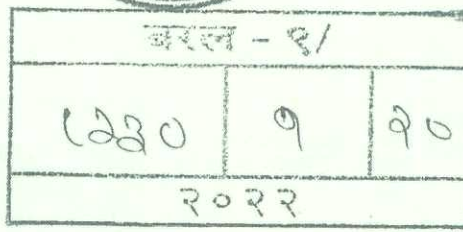 बरल - १/
८२३० १ २०
२०२२